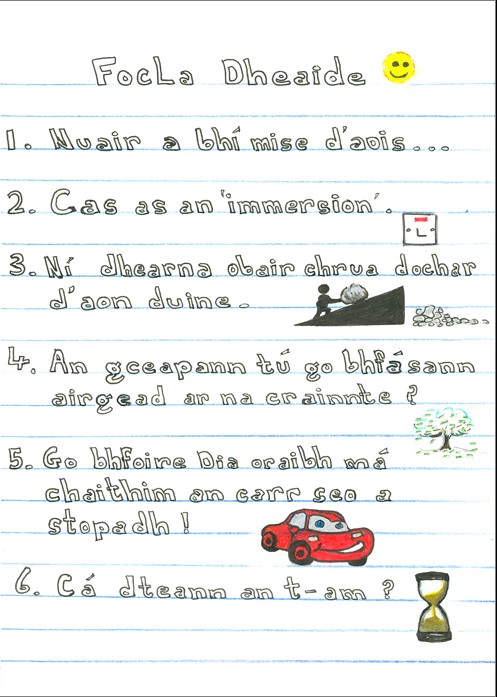 FocLa Dheaide
1. Nuair a bhí mise d'aois...
2. Cas as an 'immersion'.
3. Ní dhearna obair chrua dochar
d'aon duine.
4. An gceapann tú go bhfásann
airgead ar na crainnte ?
5. Go bhfoire Dia oraibh má
chaithim an carr seo a
stopadh !
6. Cá dteann an t-am ?